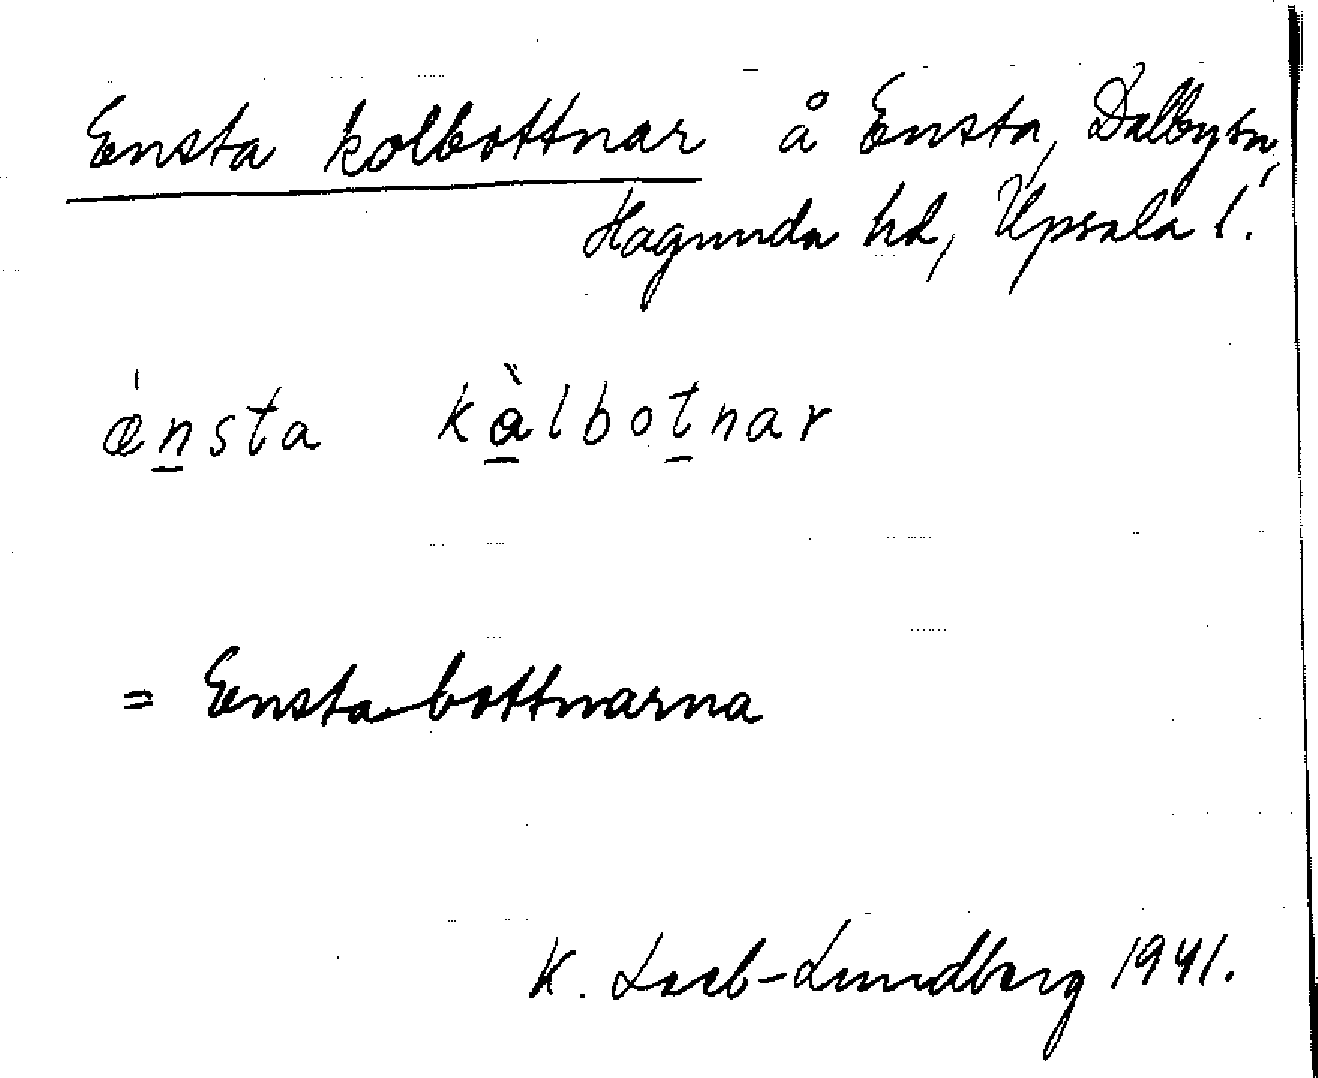 Ensta kolbottnar å Ensta, Dalby sn,
Hagunda hd, Upsala l.
ænsta kàlbotnar
= Ensta-bottnarna
K. Loeb-Lundberg 1941.